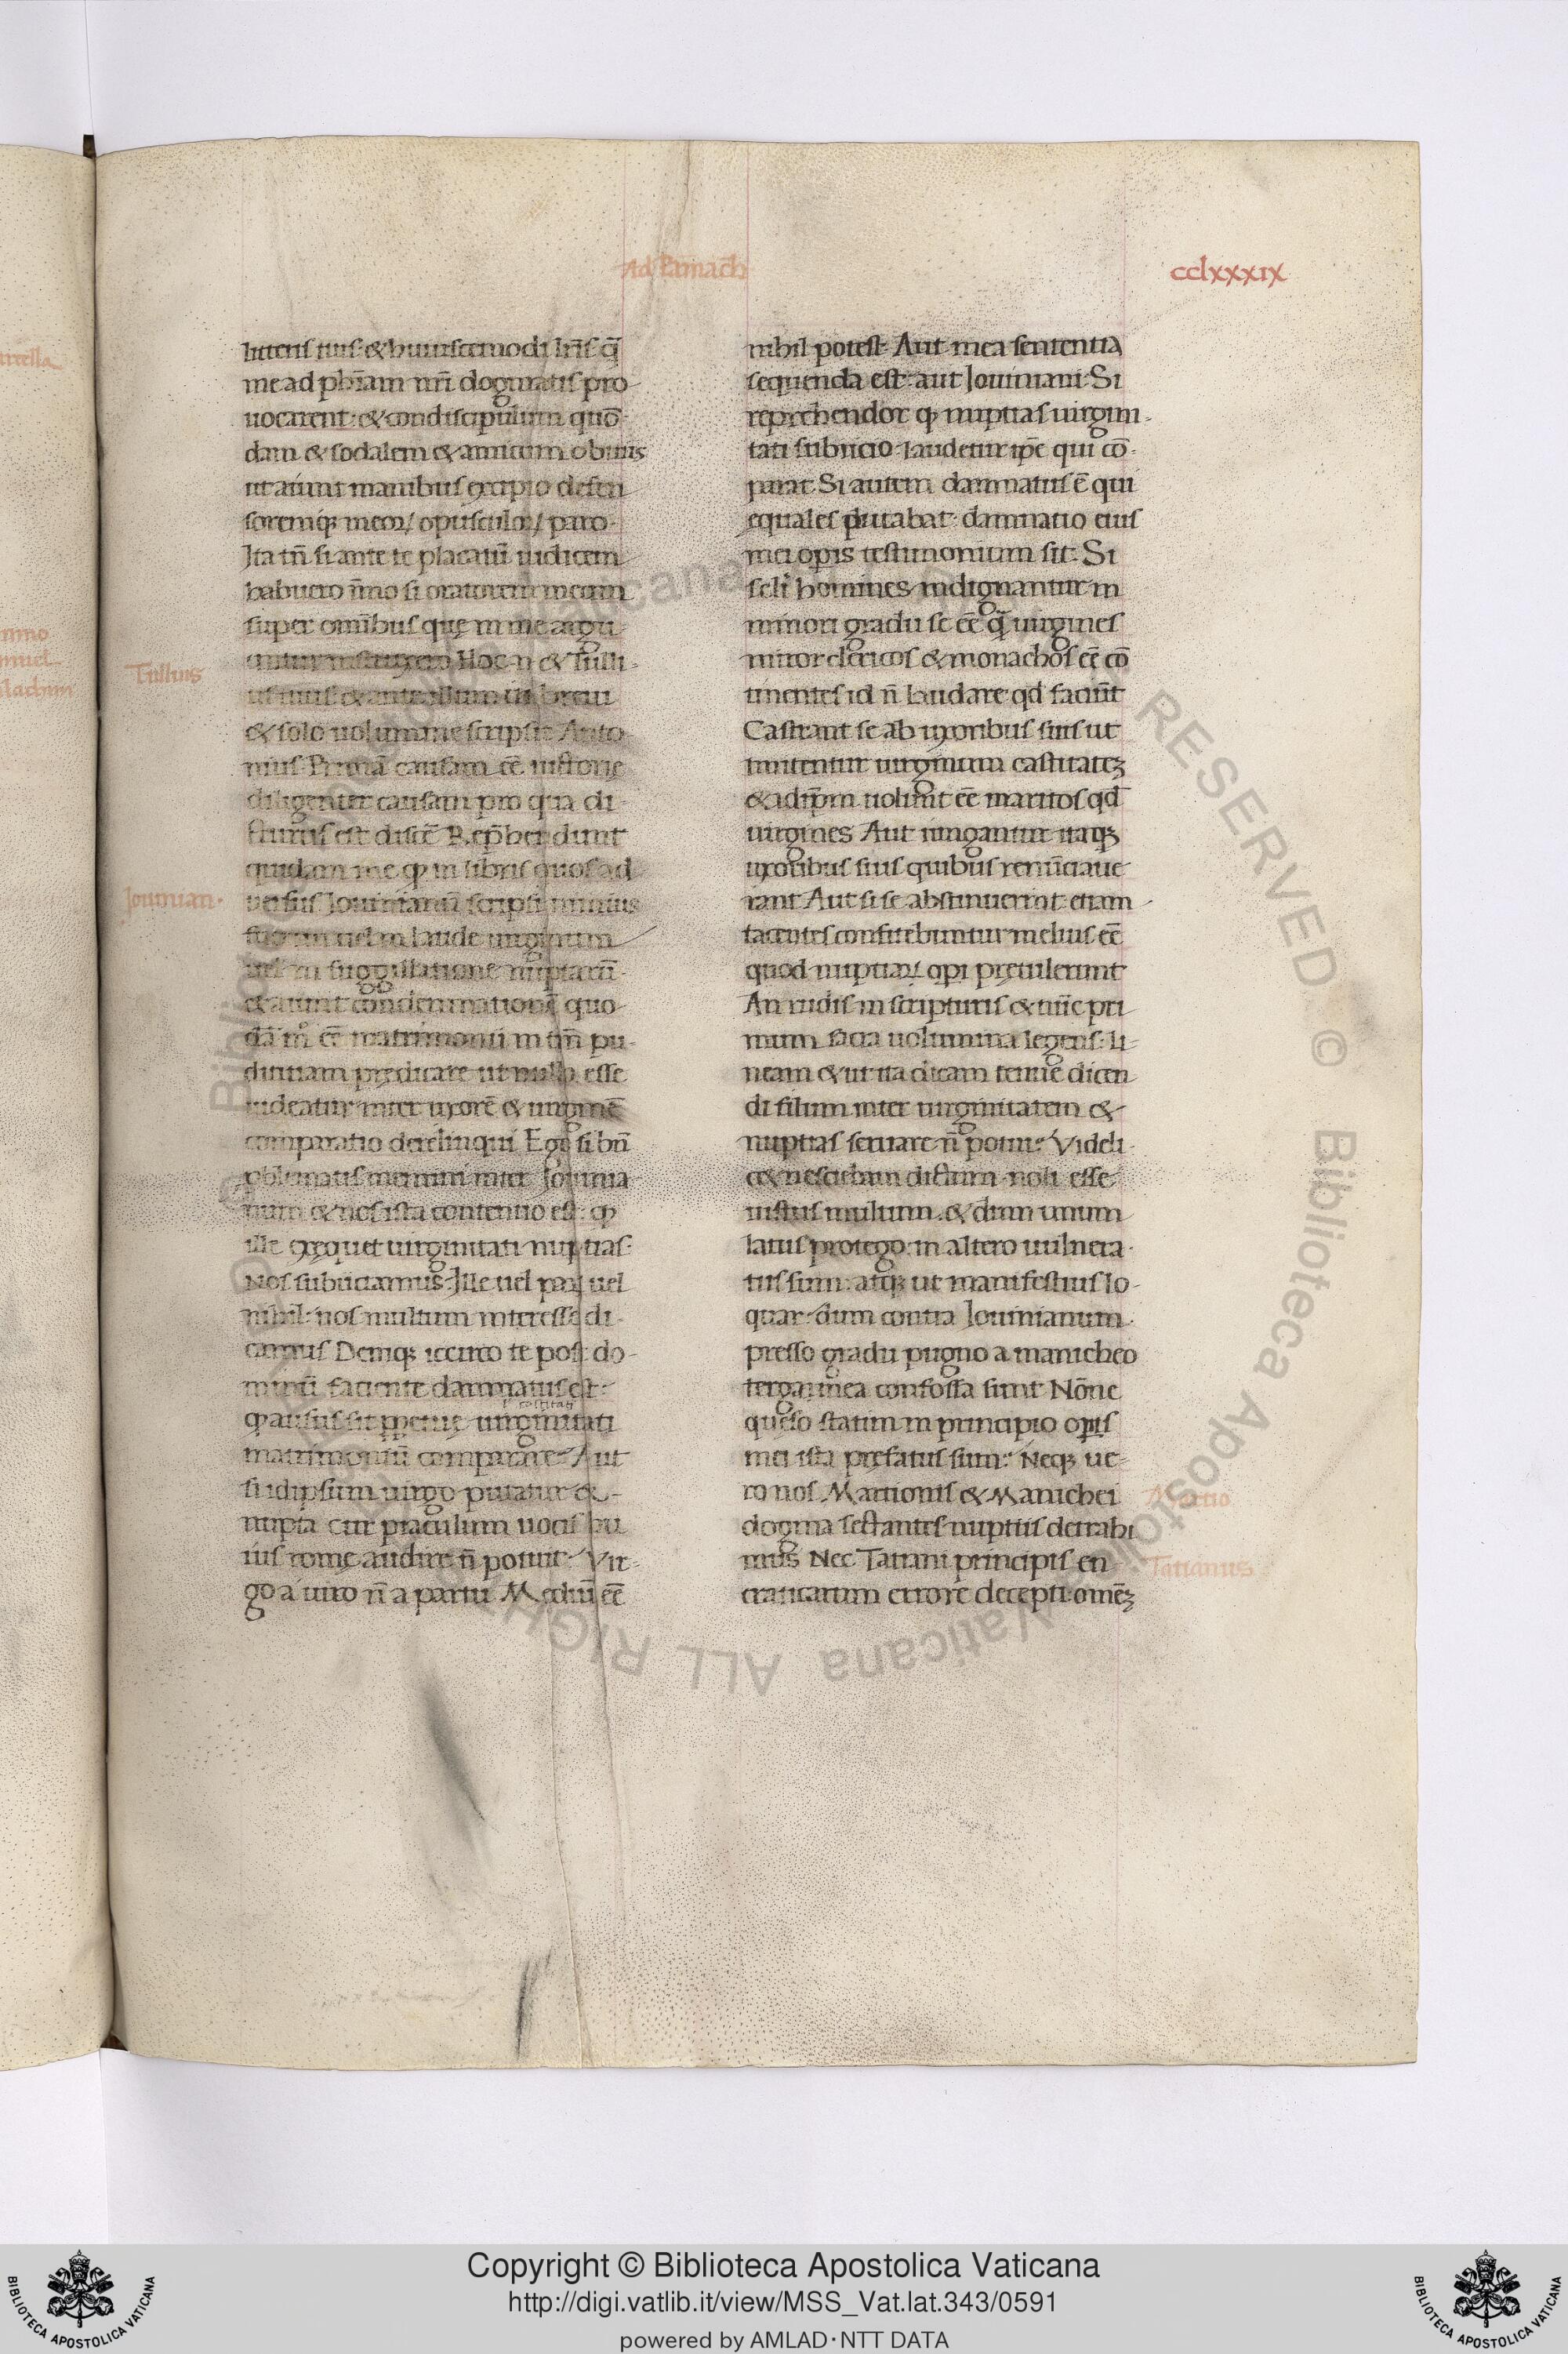 Ad Pamach̄
cclxxxix
litteris tuis & huiuscemodi lr̄is q̄
me ad ph̄iam nr̄i dogmatis pro
uocarent & condiscipulum quō
dam & sodalem & amicum obuiis
ut aiunt manibus excipio defen
soremq; meoꝝ opusculoꝝ paro
Ita tn̄ si ante te placatū iudicem
habuero īmo si oratorem meum
super omībus que in me argu
untur instruxero Hoc n & Tulli
Tullius
us tuus & ante illum in breui
& solo uolumine scripsit Anto
nius Primā causam eē uictorie
diligenter causam pro qua di
cturus est discē Rep̄hendunt
quidam me qꝫ in libris quos ad
uersus Iouinianū scripsi nimius
Iouinian
fuerim uel in laude uirginum
uel in suggillatione nuptarū
& aiunt condemnationē quo
dā mº eē matrimonii in tm̄ pu
dicitiam predicare ut nulla esse
uideatur inter uxorē & uirginē
comparatio derelinqui Ego si bn̄
problematis memini inter Iouinia
num & nos ista contentio est qꝫ
ille exequet uirginitati nuptias
Nos subiciamus Ille uel paꝝ uel
nihil nos multum interesse di
camus Deniqꝫ iccirco te post do
minū faciente damnatus est
castitati
qꝫ ausus sit ppetue uirginitati
matrimoniū comparare Aut
si idipsum uirgo putatur &
nupta cur piaculum uocis hu
ius rome audire n̄ potuit Vir
go a uiro n̄ a partu Mediū eē
nihil potest Aut mea sententia
sequenda est aut Iouiniani Si
reprehendor qꝫ nuptias uirgini
tati subicio laudetur ip̄e qui cō
parat Si autem damnatus ē qui
equales putabat damnatio eius
mei operis testimonium sit Si
sclī homines indignantur in
minori gradu se eē q̄ uirgines
miror clericos & monachos eē cō
tinentes id n̄ laudare qd faciūt
Castrant se ab uxoribus suis ut
imitentur uirginum castitatēꝫ
& adip̄m uolunt eē maritos qd
uirgines Aut iungantur itaqꝫ
uxoribus suis quibus renūciaue
rant Aut si se abstinuerint etiam
tacentes confitebuntur melius eē
quod nuptiaꝝ opi pretulerunt
An rudis in scripturis & tūc pri
mum sacra uolumina legens li
neam & ut ita dicam tenue dicen
di filum inter uirginitatem &
nuptias seruare n̄ potui Videli
cet nesciebam dictum noli esse
iustus multum & dum unum
latus protego in altero uulnera
tus sum atqꝫ ut manifestius lo
quar dum contra Iouinianum
presso gradu pugno a manicheo
terga mea confossa sunt Nōne
queso statim in principio opis
mei ista prefatus sum Neqꝫ ue
ro nos Marcionis & Manichei
Marcio
dogma sectantes nuptiis detrahi
mus Nec Tatiani principis en
Tatianus
cratitarum errore decepti omēꝫ
Copyright © Biblioteca Apostolica Vaticana
http://digi.vatlib.it/view/MSS_Vat.lat.343/0591
powered by AMLAD·NTT DATA
BIBLIOTECA APOSTOLICA VATICANA
BIBLIOTECA APOSTOLICA VATICANA